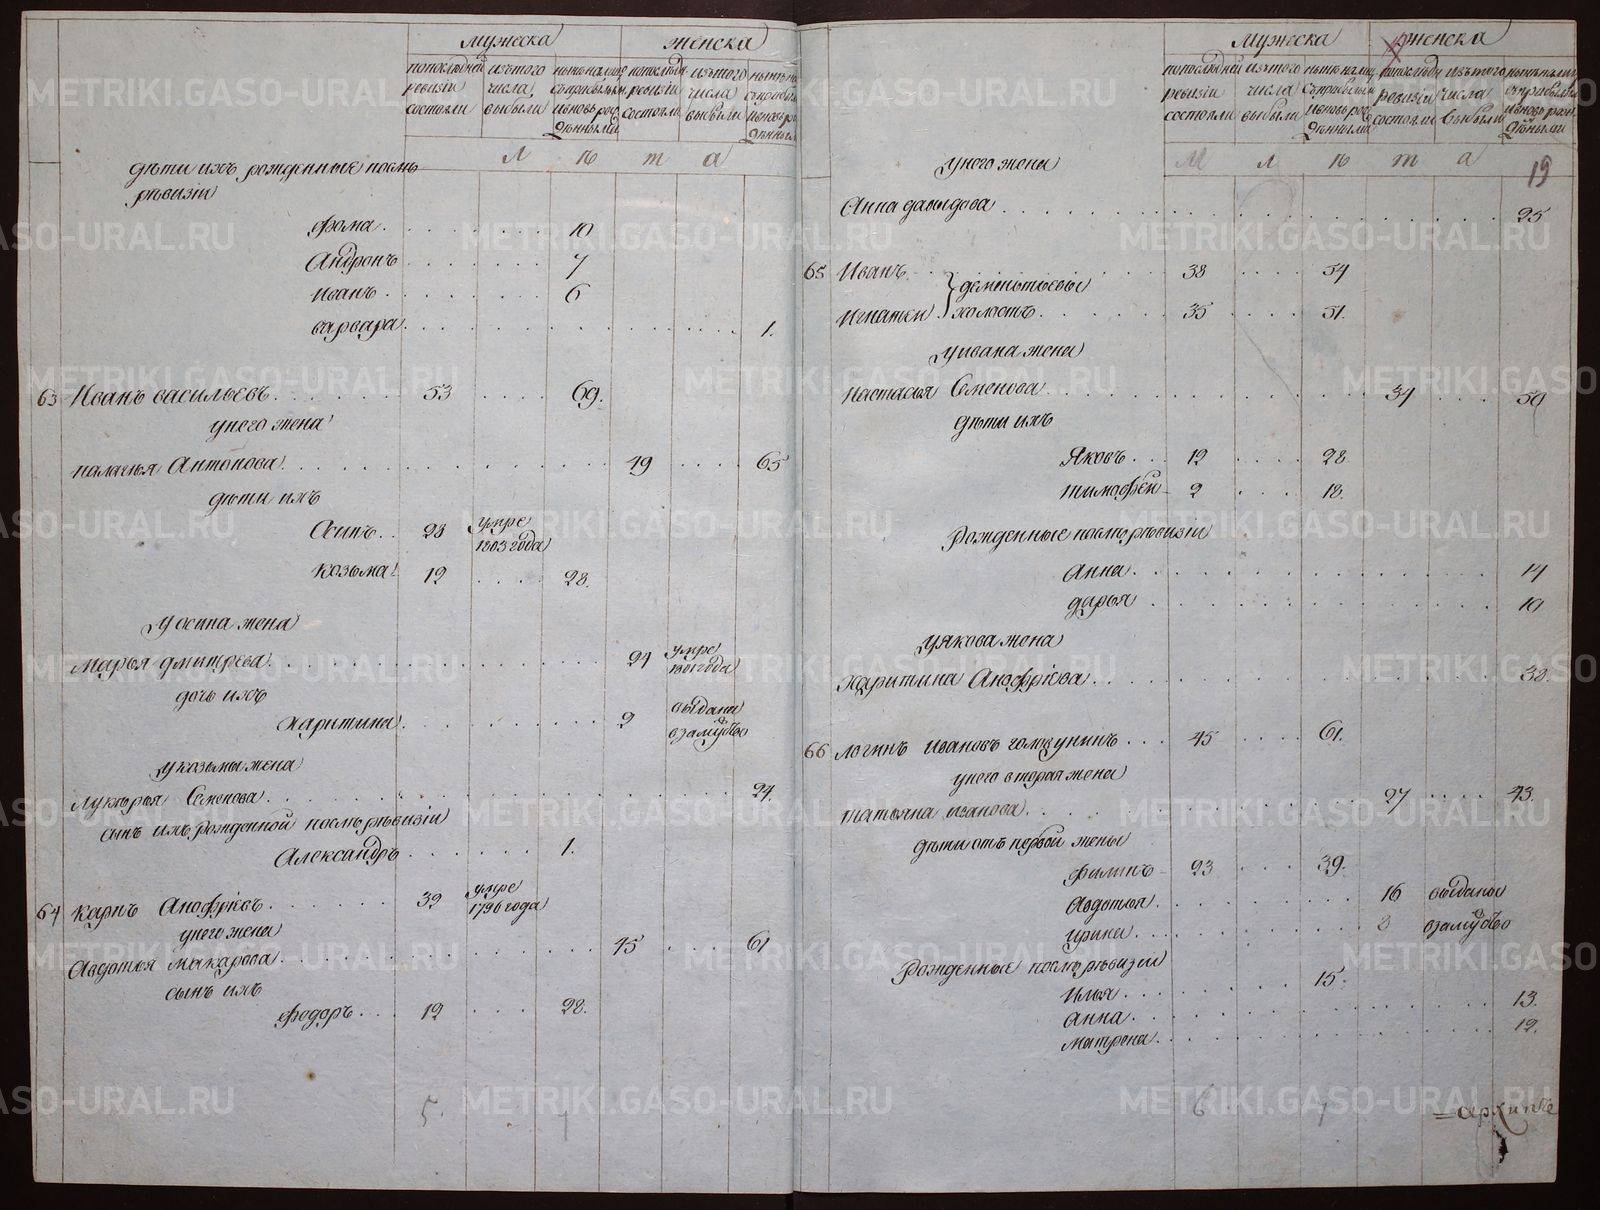 мужеска женска
попоследней ревизiи состояли
изътого числа выбыли
ныне налицо съприбылыми ивновь рожденными
попоследней ревизiи состояли
изътого числа выбыли
л ѣ т а
дѣти ихъ рожденные послѣ
рѣвизiи
фома 10
Андронъ 7
Иванъ 6
варвара 1.
63 Иванъ васильевъ 53 69.
унего жена
палагѣя Антонова 49 65
дѣти ихъ
Осипъ 23 умре 1803 года
козьма 12 28.
У осипа жена
Марья дмитрева 24 умре 1801 года
дочь ихъ
харитина 2 выдана взамужъ
У козьмы жена
лукерья Семенова 24.
сынъ ихъ рожденной послѣ рѣвизiи
Александръ 1.
64 карпъ Анофрiевъ 39 умре 1796 года
унего жена
Авдотья макарова 45 61
сынъ ихъ
федоръ 12 28.
5. 4
мужеска женска
попоследней ревизiи состояли
изътого числа выбыли
ныне налицо съприбылыми ивновь рожденными
попоследней ревизiи состояли
изътого числа выбыли
ныне налицо съприбылыми ивновь рожденными
л ѣ т а
19
Унего жена
Анна давыдова 25
65 Иванъ 38 54
дементьевы
Игнатей холостъ 35 51.
Уивана жена
настасья Семенова 34 50
дѣти ихъ
Яковъ 12 28
тимофей 2 18.
Рожденные послѣ рѣвизiи
Анна 14
дарья 10
Уякова жена
харитина Анофрiева 32.
66 логинъ Ивановъ головунинъ 45 61.
унего вторая жена
татьяна иванова 27 43.
дѣти отъ первой жены
филипъ 23 39.
Авдотья 16 выданы
ирина 3 взамужъ
Рожденные послѣ рѣвизiи
Илья 15.
Анна 13.
матрена 12.
6 7
METRIKI.GASO-URAL.RU